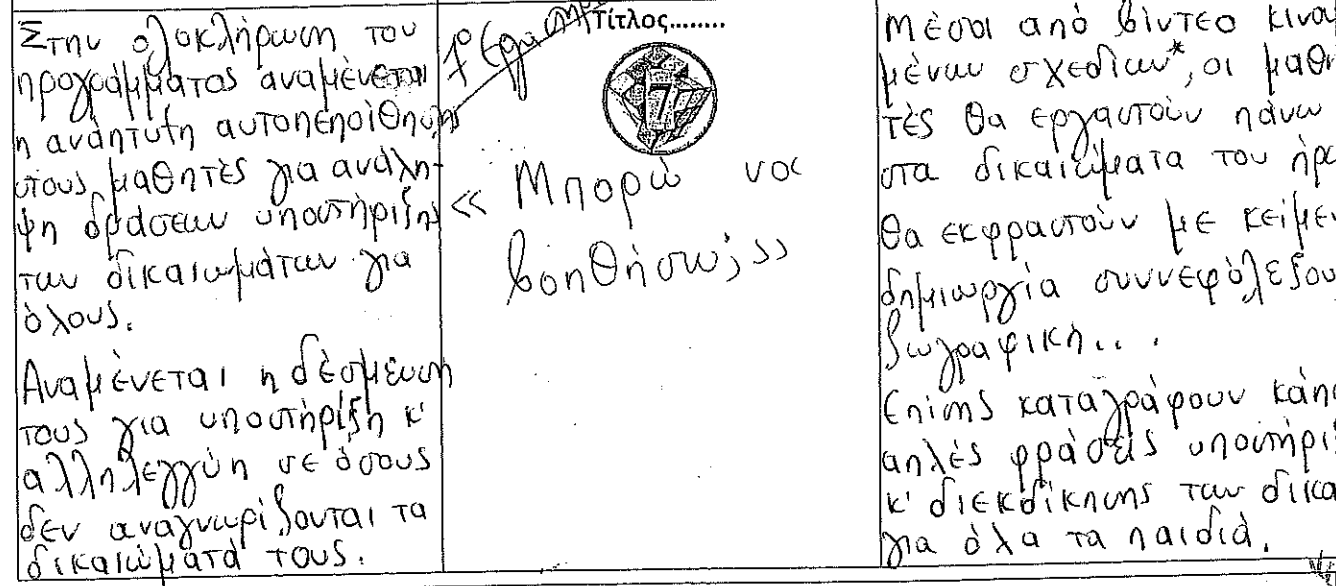 Στην ολοκλήρωση του
προγράμματος αναμένεται
η ανάπτυξη αυτοπεποίθησης
στους μαθητές για ανάλη-
ψη δράσεων υποστήριξης
των δικαιωμάτων για
όλους.
Αναμένεται η δέσμευση
τους για υποστήριξη κ'
αλληλεγγύη σε όσους
δεν αναγνωρίζονται τα
δικαιώματά τους.
Τίτλος........
7
« Μπορώ να
βοηθήσω; »
Μέσα από βίντεο κινου
μένων σχεδίων*, οι μαθη
τές θα εργαστούν πάνω
στα δικαιώματα του
θα εκφραστούν με κείμε
δημιουργία συννεφόλεξου
ζωγραφική...
Επίσης καταγράφουν κάπ
απλές φράσεις υποστήρι
κ' διεκδίκησης των δικα
για όλα τα παιδιά.